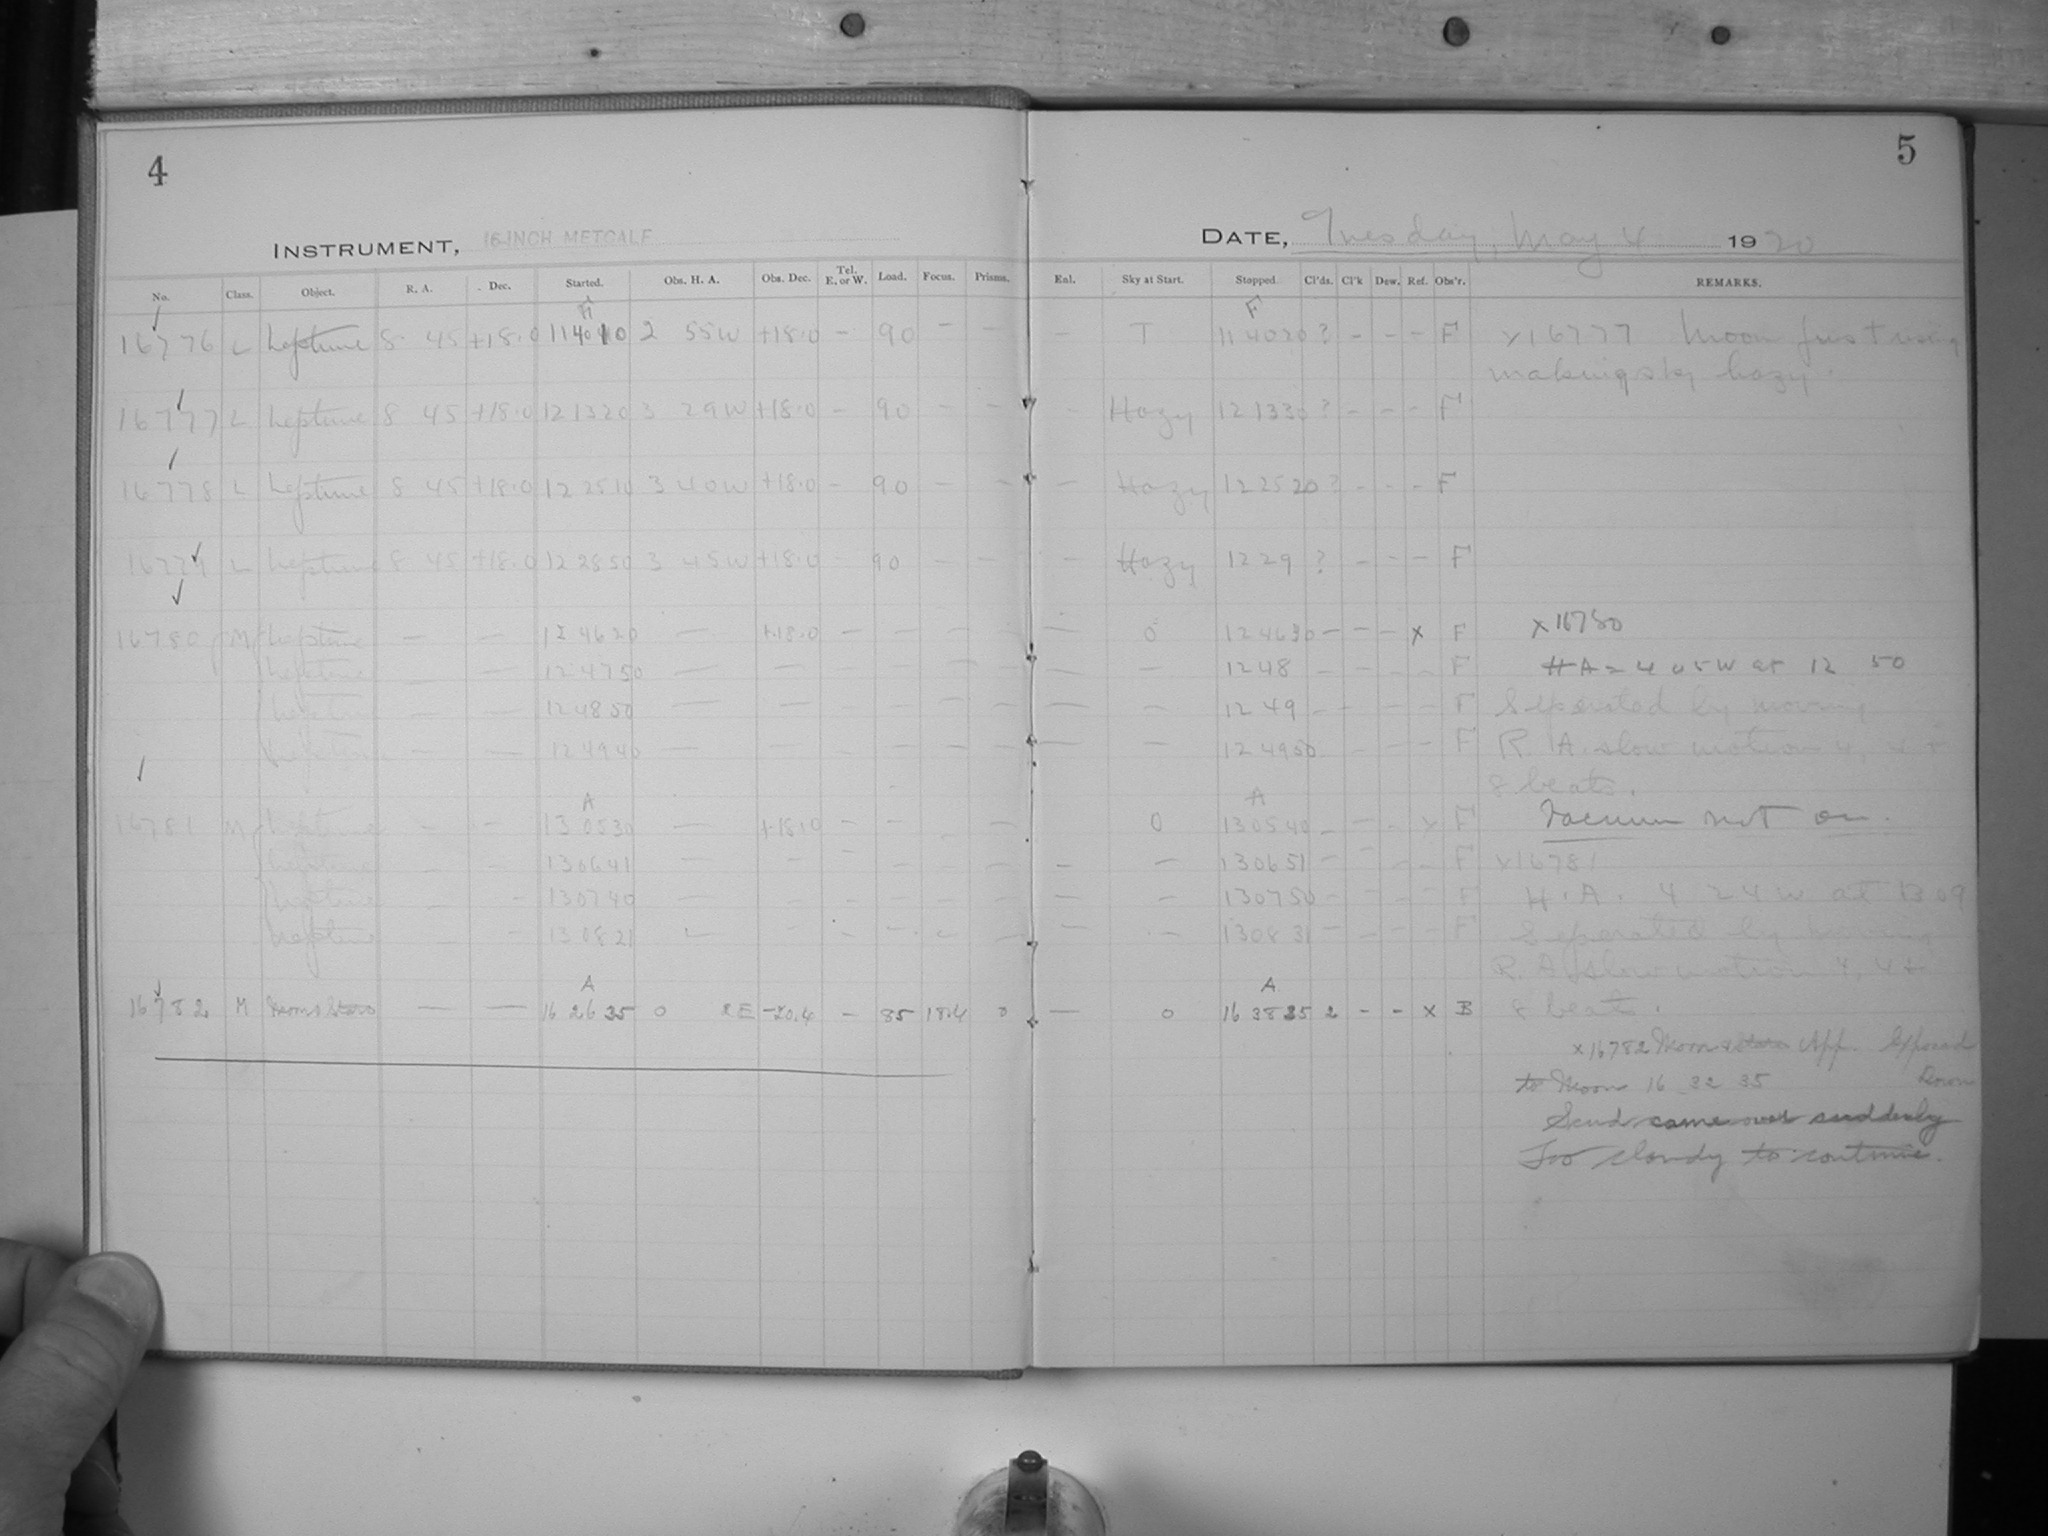 4
INSTRUMENT, 16-INCH METCALF
No. Class. Object. R. A. Dec. Started. Obs. H. A. Obs. Dec. Tel. E. or W. Load. Focus. Prisms.
16776 L Neptune 8 45 +18.0 2 55W +18.0 - 90 - -
16777 L Neptune 8 45 +18.0 12 13 20 3 29W +18.0 - 90 - -
16778 L Neptune 8 45 +18.0 12 25 10 3 40W +18.0 - 90 - -
16779 L Neptune 8 45 +18.0 12 28 50 3 45W +18.0 - 90 - -
16780 M Neptune - - 12 46 20 - +18.0 - - - -
Neptune - 12 47 50 - - - - - -
Neptune - - 12 48 50 - - - - - -
Neptune - - 12 49 40 - - - - - -
A
16781 M Neptune - - 13 05 30 - +18.0 - - - -
Neptune - - 13 06 41 - - - - - -
Neptune - - 13 07 40 - - - - - -
Neptune - - 13 08 21 - - - - - -
A
16782 M Moon & Stars - - 16 26 35 0 2E -20.4 - 85 18.4 0
5
DATE, Tuesday, May 4 1920
Enl. Sky at Start. Stopped Cl'ds. Cl'k Dew. Ref. Obs'r. REMARKS.
F
- T 11 40 20 ? - - - F x16777 Moon just rising
making sky hazy.
- Hazy 12 13 30 ? - - - F
- Hazy 12 25 20 ? - - - F
- Hazy 12 29 ? - - - F
- 0 12 46 30 - - - x F x16780
- - 12 48 - - - - F HA = 4 05W at 12 50
- - 12 49 - - - - F Seperated by moving
- - 12 49 50 - - - - F R. A. slow motion 4, 4 +
8 beats.
A
0 13 05 40 - - - x F Vacuum not on.
- - 13 06 51 - - - - F x16781
- - 13 07 50 - - - - F H. A. 4 24W at 13 09
- - 13 08 31 - - - - F Seperated by moving
R. A. slow motion 4, 4 +
A
- 0 16 38 35 2 - - x B 8 beats.
x16782 Moon & Stars App. Exposed
to Moon 16 32 35 Down
Scud came over suddenly
Too cloudy to continue.